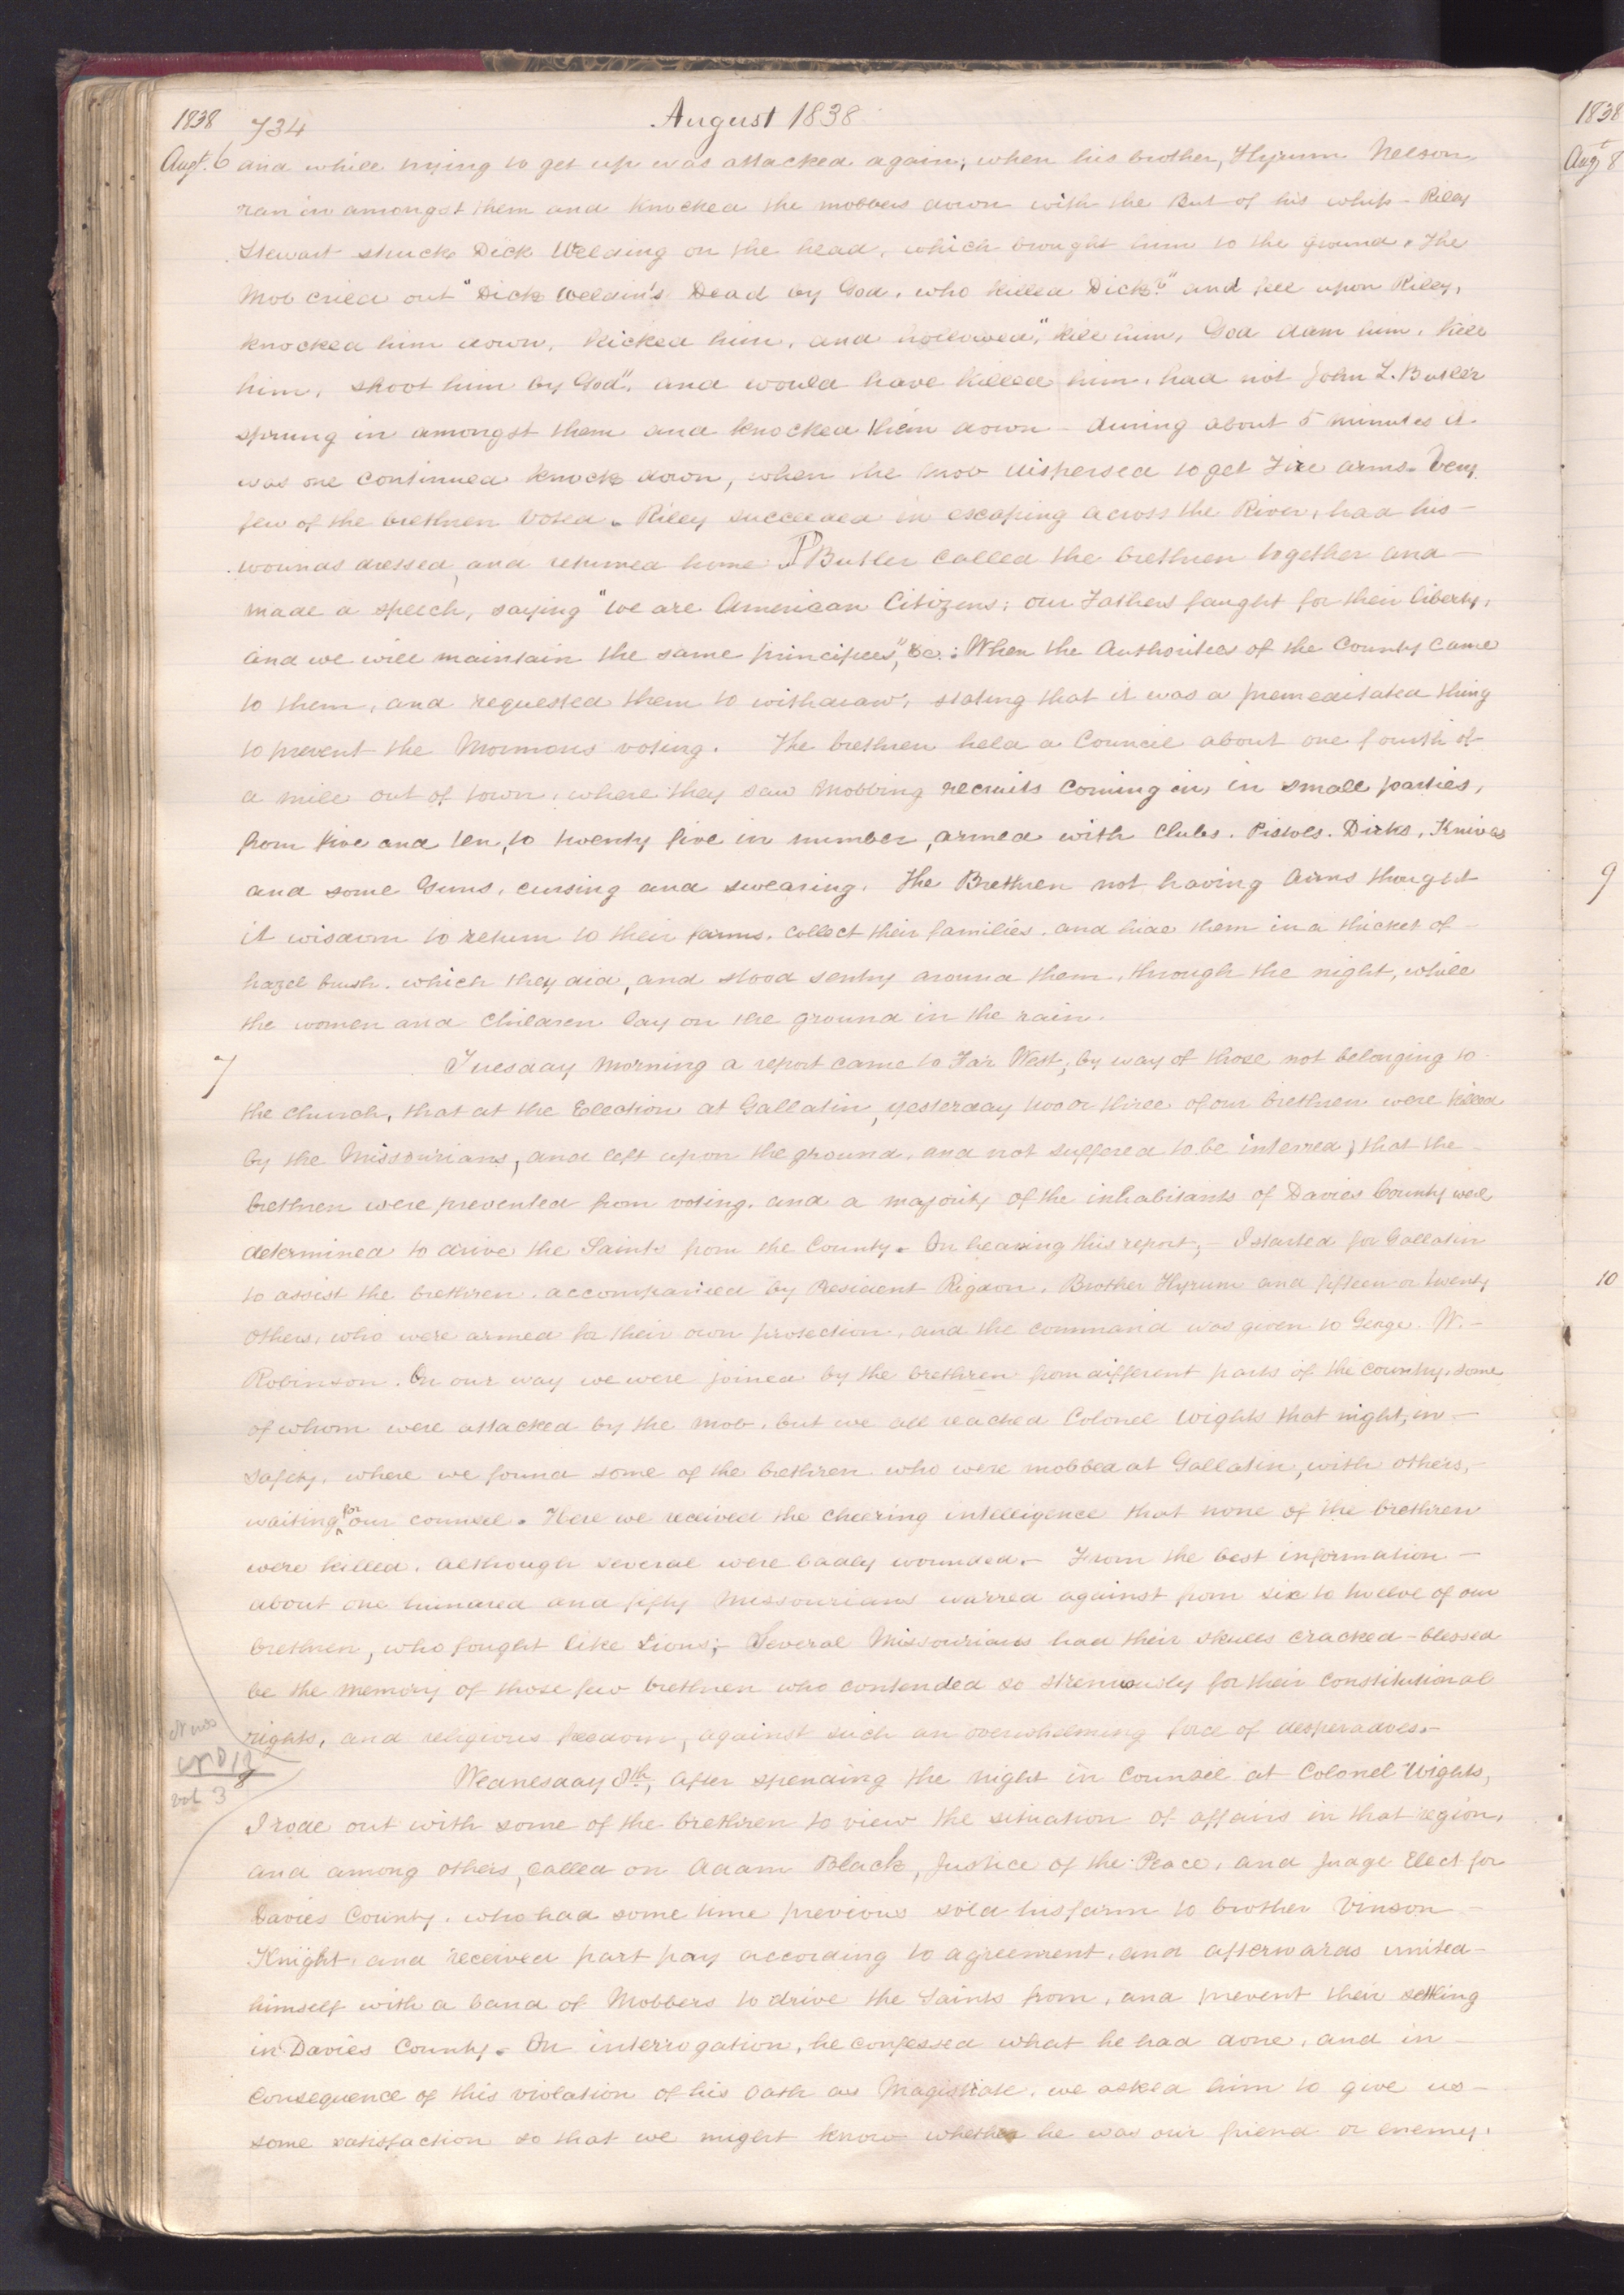 1838 734 August 1838
Augt. 6 and while trying to get up was attacked again; when his brother, Hyrum Nelson,
ran in amongst them and knocked the mobbers down with the But of his whip - Riley
Stewart struck Dick Welding on the head, which brought him to the ground. The
Mob cried out "Dick Weldin's Dead by God, who killed Dick?" and fell upon Riley,
knocked him down, kicked him, and hollowed, "kill him, God dam him, kill
him, shoot him by God", and would have killed him, had not John L. Butler
sprung in amongst them and knocked them down - during about 5 minutes it
was one continued knock down, when the mob dispersed to get Fire arms. Very
few of the brethren voted. Riley succeeded in escaping across the River, had his -
wounds dressed, and returned home. P Butler called the brethren together and -
made a speech, saying "we are American Citizens; our Fathers faught for their liberty,
and we will maintain the same principles", &c. When the Authorities of the County came
to them, and requested them to withdraw, stating that it was a premeditated thing
to prevent the Mormons voting. The brethren held a Council about one fourth of
a mile out of town, where they saw Mobbing recruits coming in, in small parties,
from five and ten, to twenty five in number, armed with Clubs. Pistols. Dirks, Knives
and some Guns, cursing and swearing. The Brethren not having Arms thought
it wisdom to return to their farms, collect their families, and hide them in a thicket of -
hazel bush, which they did, and stood sentry around them, through the night, while
the women and children lay on the ground in the rain.
7 Tuesday morning a report came to Far West, by way of those not belonging to
the church, that at the Election at Gallatin, yesterday two or three of our brethren were killed
by the Missourians, and left upon the ground, and not suffered to be interred; that the -
brethren were prevented from voting, and a majority of the inhabitants of Davies County were
determined to drive the Saints from the County. On hearing this report, - I started for Gallatin
to assist the brethren, accompanied by President Rigdon, Brother Hyrum and fifteen or twenty
others, who were armed for their own protection, and the command was given to George W. -
Robinson. On our way we were joined by the brethren from different parts of the country, some
of whom were attacked by the mob, but we all reached Colonel Wights that night, in -
safety, where we found some of the brethren who were mobbed at Gallatin, with others, -
waiting for our counsel. Here we received the cheering intelligence that none of the brethren
were killed, although several were badly wounded. - From the best information -
about one hundred and fifty Missourians warred against from six to twelve of our
brethren, who fought like Lions; - Several Missourians had their skulls cracked - blessed
be the memory of those few brethren who contended so strenuously for their constitutional
rights, and religious freedom, against such an overwhelming force of desperadoes. -
vol 3
8
Wednesday 8th, After spending the night in Counsil at Colonel Wights,
I rode out with some of the brethren to view the situation of affairs in that region,
and among others, called on Adam Black, Justice of the Peace, and Judge Elect for
Davies County, who had some time previous sold his farm to brother Vinson -
Knight, and received part pay according to agreement, and afterwards united -
himself with a band of Mobbers to drive the Saints from, and prevent their settling
in Davies County. On interrogation, he confessed what he had done, and in -
consequence of this violation of his oath as Magistrate, we asked him to give us -
some satisfaction so that we might know whether he was our friend or enemy,
1838
Augt 8
9
10